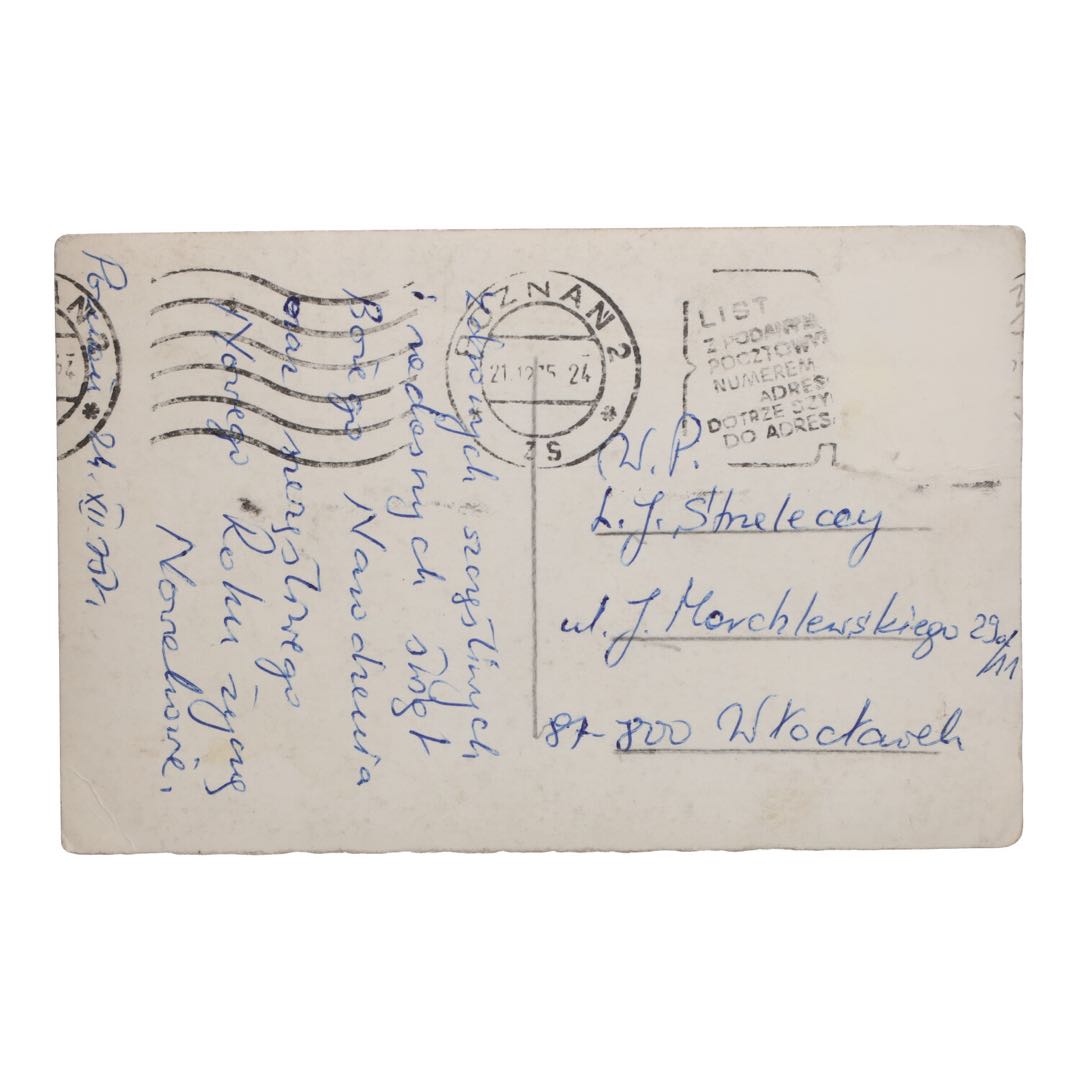 Zdrowych szczęśliwych
i radosnych świąt
Bożego Narodzenia
oraz pomyślnego
Nowego Roku życzą
Nowakowie.
Poznań 21. XII. 75r.
POZNAŃ 2
21.12.75 24
LIST
Z PODANYM
POCZTOWYM
NUMEREM
ADRES
DOTRZE SZY
DO ADRES
W. P.
L. J. Strzeleccy
ul. J. Marchlewskiego 29a/11
87-800 Włocławek